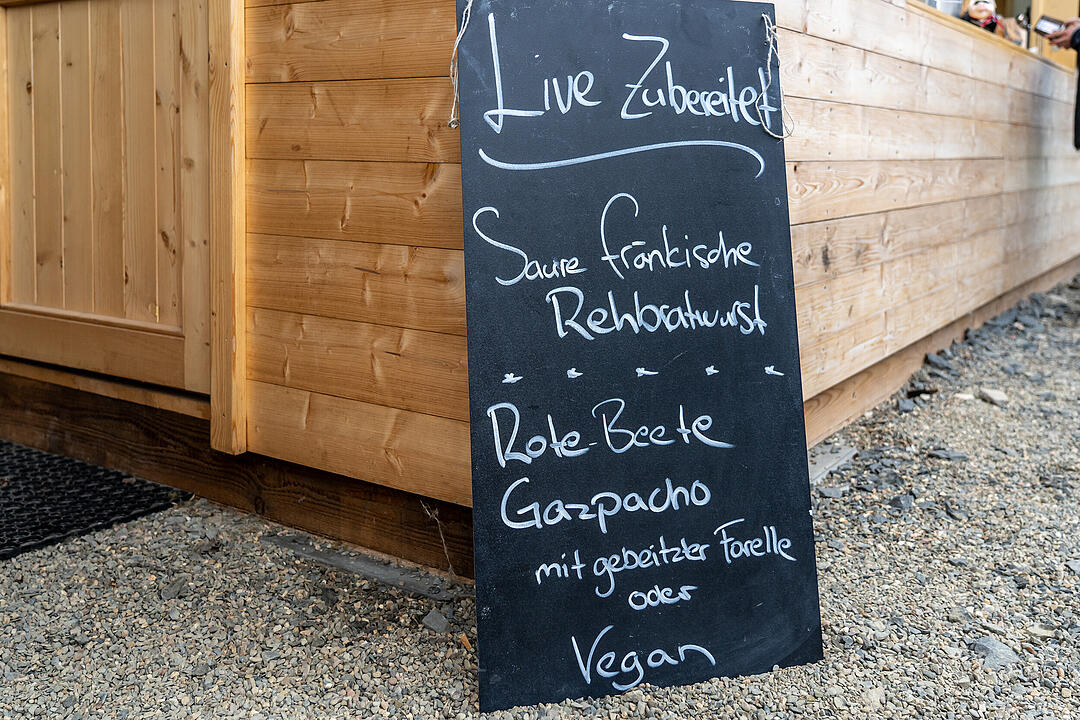 Live Zubereitet
Saure fränkische
Rehbratwurst
Rote-Beete
Gazpacho
mit gebeitzter Forelle
oder
Vegan